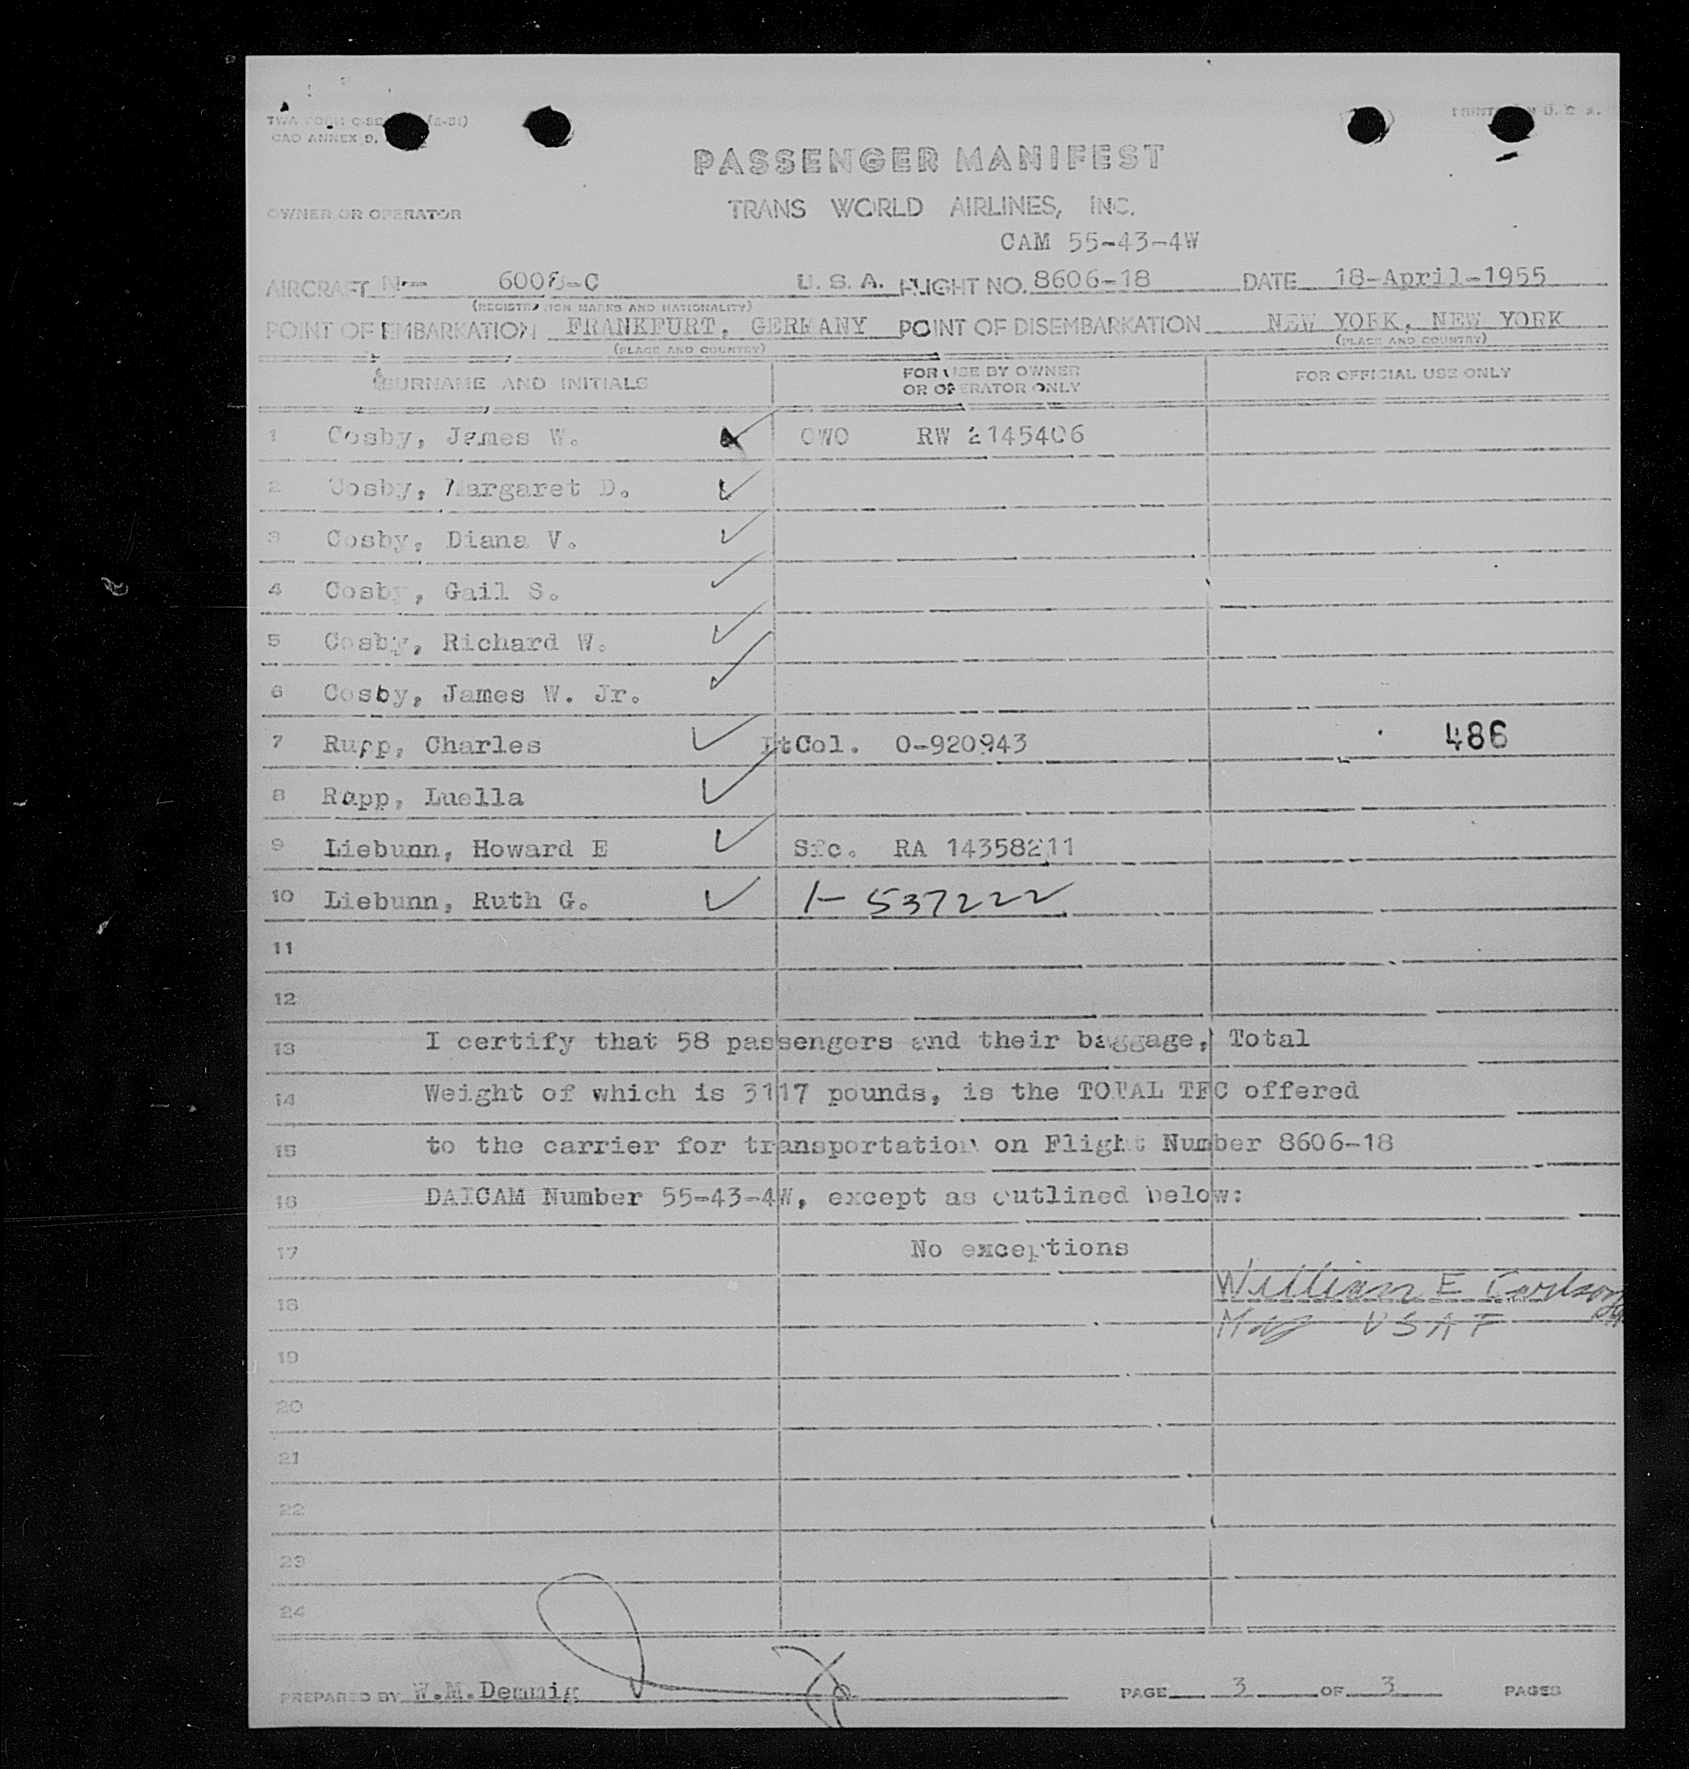 TWA FORM
CAO ANNEX 9.
PRINTED IN U. S. A.
PASSENGER MANIFEST
OWNER OR OPERATOR TRANS WORLD AIRLINES, INC.
CAM 55-43-4W
AIRCRAFT N-- 6008-C U. S. A. FLIGHT NO. 8606-18 DATE 18-April-1955
(REGISTRATION MARKS AND NATIONALITY)
POINT OF EMBARKATION FRANKFURT, GERMANY POINT OF DISEMBARKATION NEW YORK, NEW YORK
(PLACE AND COUNTRY) (PLACE AND COUNTRY)
SURNAME AND INITIALS FOR USE BY OWNER OR OPERATOR ONLY FOR OFFICIAL USE ONLY
1 Cosby, James W. CWO RW 2145406
2 Cosby, Margaret D.
3 Cosby, Diana V.
4 Cosby, Gail S.
5 Cosby, Richard W.
6 Cosby, James W. Jr.
7 Rupp, Charles LtCol. O-920943 486
8 Rupp, Luella
9 Liebunn, Howard E Sfc. RA 14358211
10 Liebunn, Ruth G. 1- 537222
11
12
13 I certify that 58 passengers and their baggage, Total
14 Weight of which is 3117 pounds, is the TOTAL TFC offered
15 to the carrier for transportation on Flight Number 8606-18
16 DAICAM Number 55-43-4W, except as outlined below:
17 No exceptions
William E Carlson
18
Maj USAF
19
20
21
22
23
24
PREPARED BY W.M.Demmig PAGE 3 OF 3 PAGES